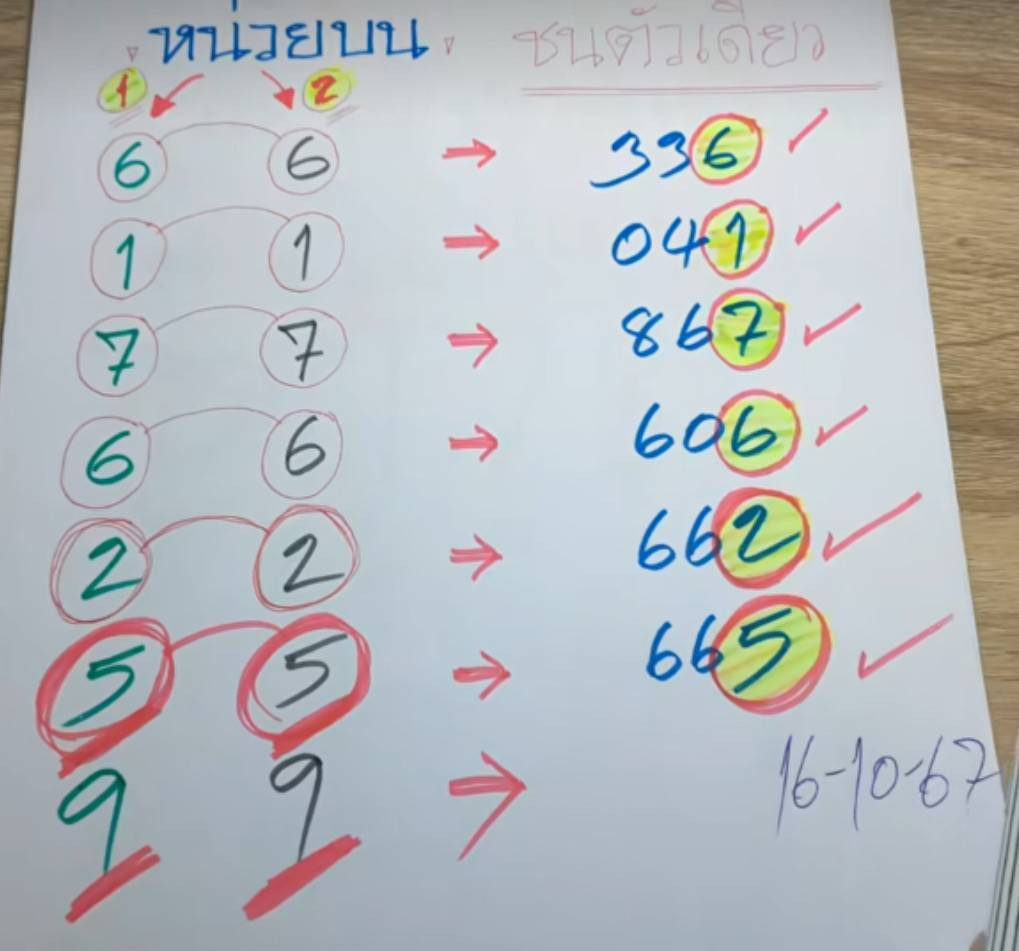 หน่วยบน ชนตัวเดียว
1 2
6 6 → 336 ✓
1 1 → 041 ✓
7 7 → 867 ✓
6 6 → 606 ✓
2 2 → 662 ✓
5 5 → 665 ✓
9 9 →
16-10-67